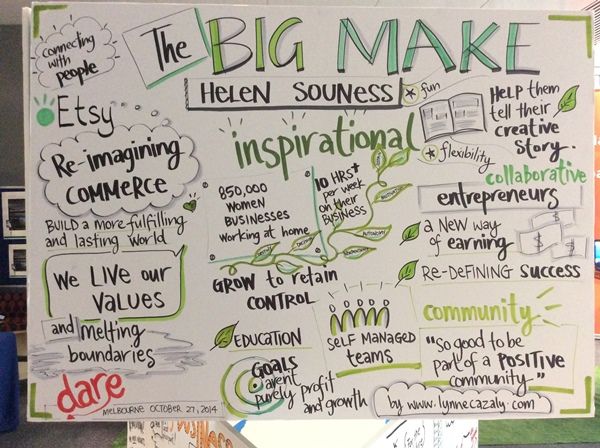 connecting
with
people
The BIG MAKE
HELEN SOUNESS
fun
Etsy
Re-imagining
COMMERCE
BUILD a more fulfilling
and lasting world
We LIVE our
VALUES
and melting
boundaries
dare
MELBOURNE OCTOBER 27, 2014
inspirational
850,000
WOMEN
BUSINESSES
working at home
10 HRS+
per week
on their
BUSINESS
AUTONOMY
GROW to retain
CONTROL
EDUCATION
GOALS
arent
purely profit
and growth
SELF MANAGED
teams
HELP them
tell their
creative
STORY.
flexibility
collaborative
entrepreneurs
a NEW way
of earning
RE-DEFINING SUCCESS
community
"so good to be
part of a POSITIVE
community"
by www.lynnecazaly.com